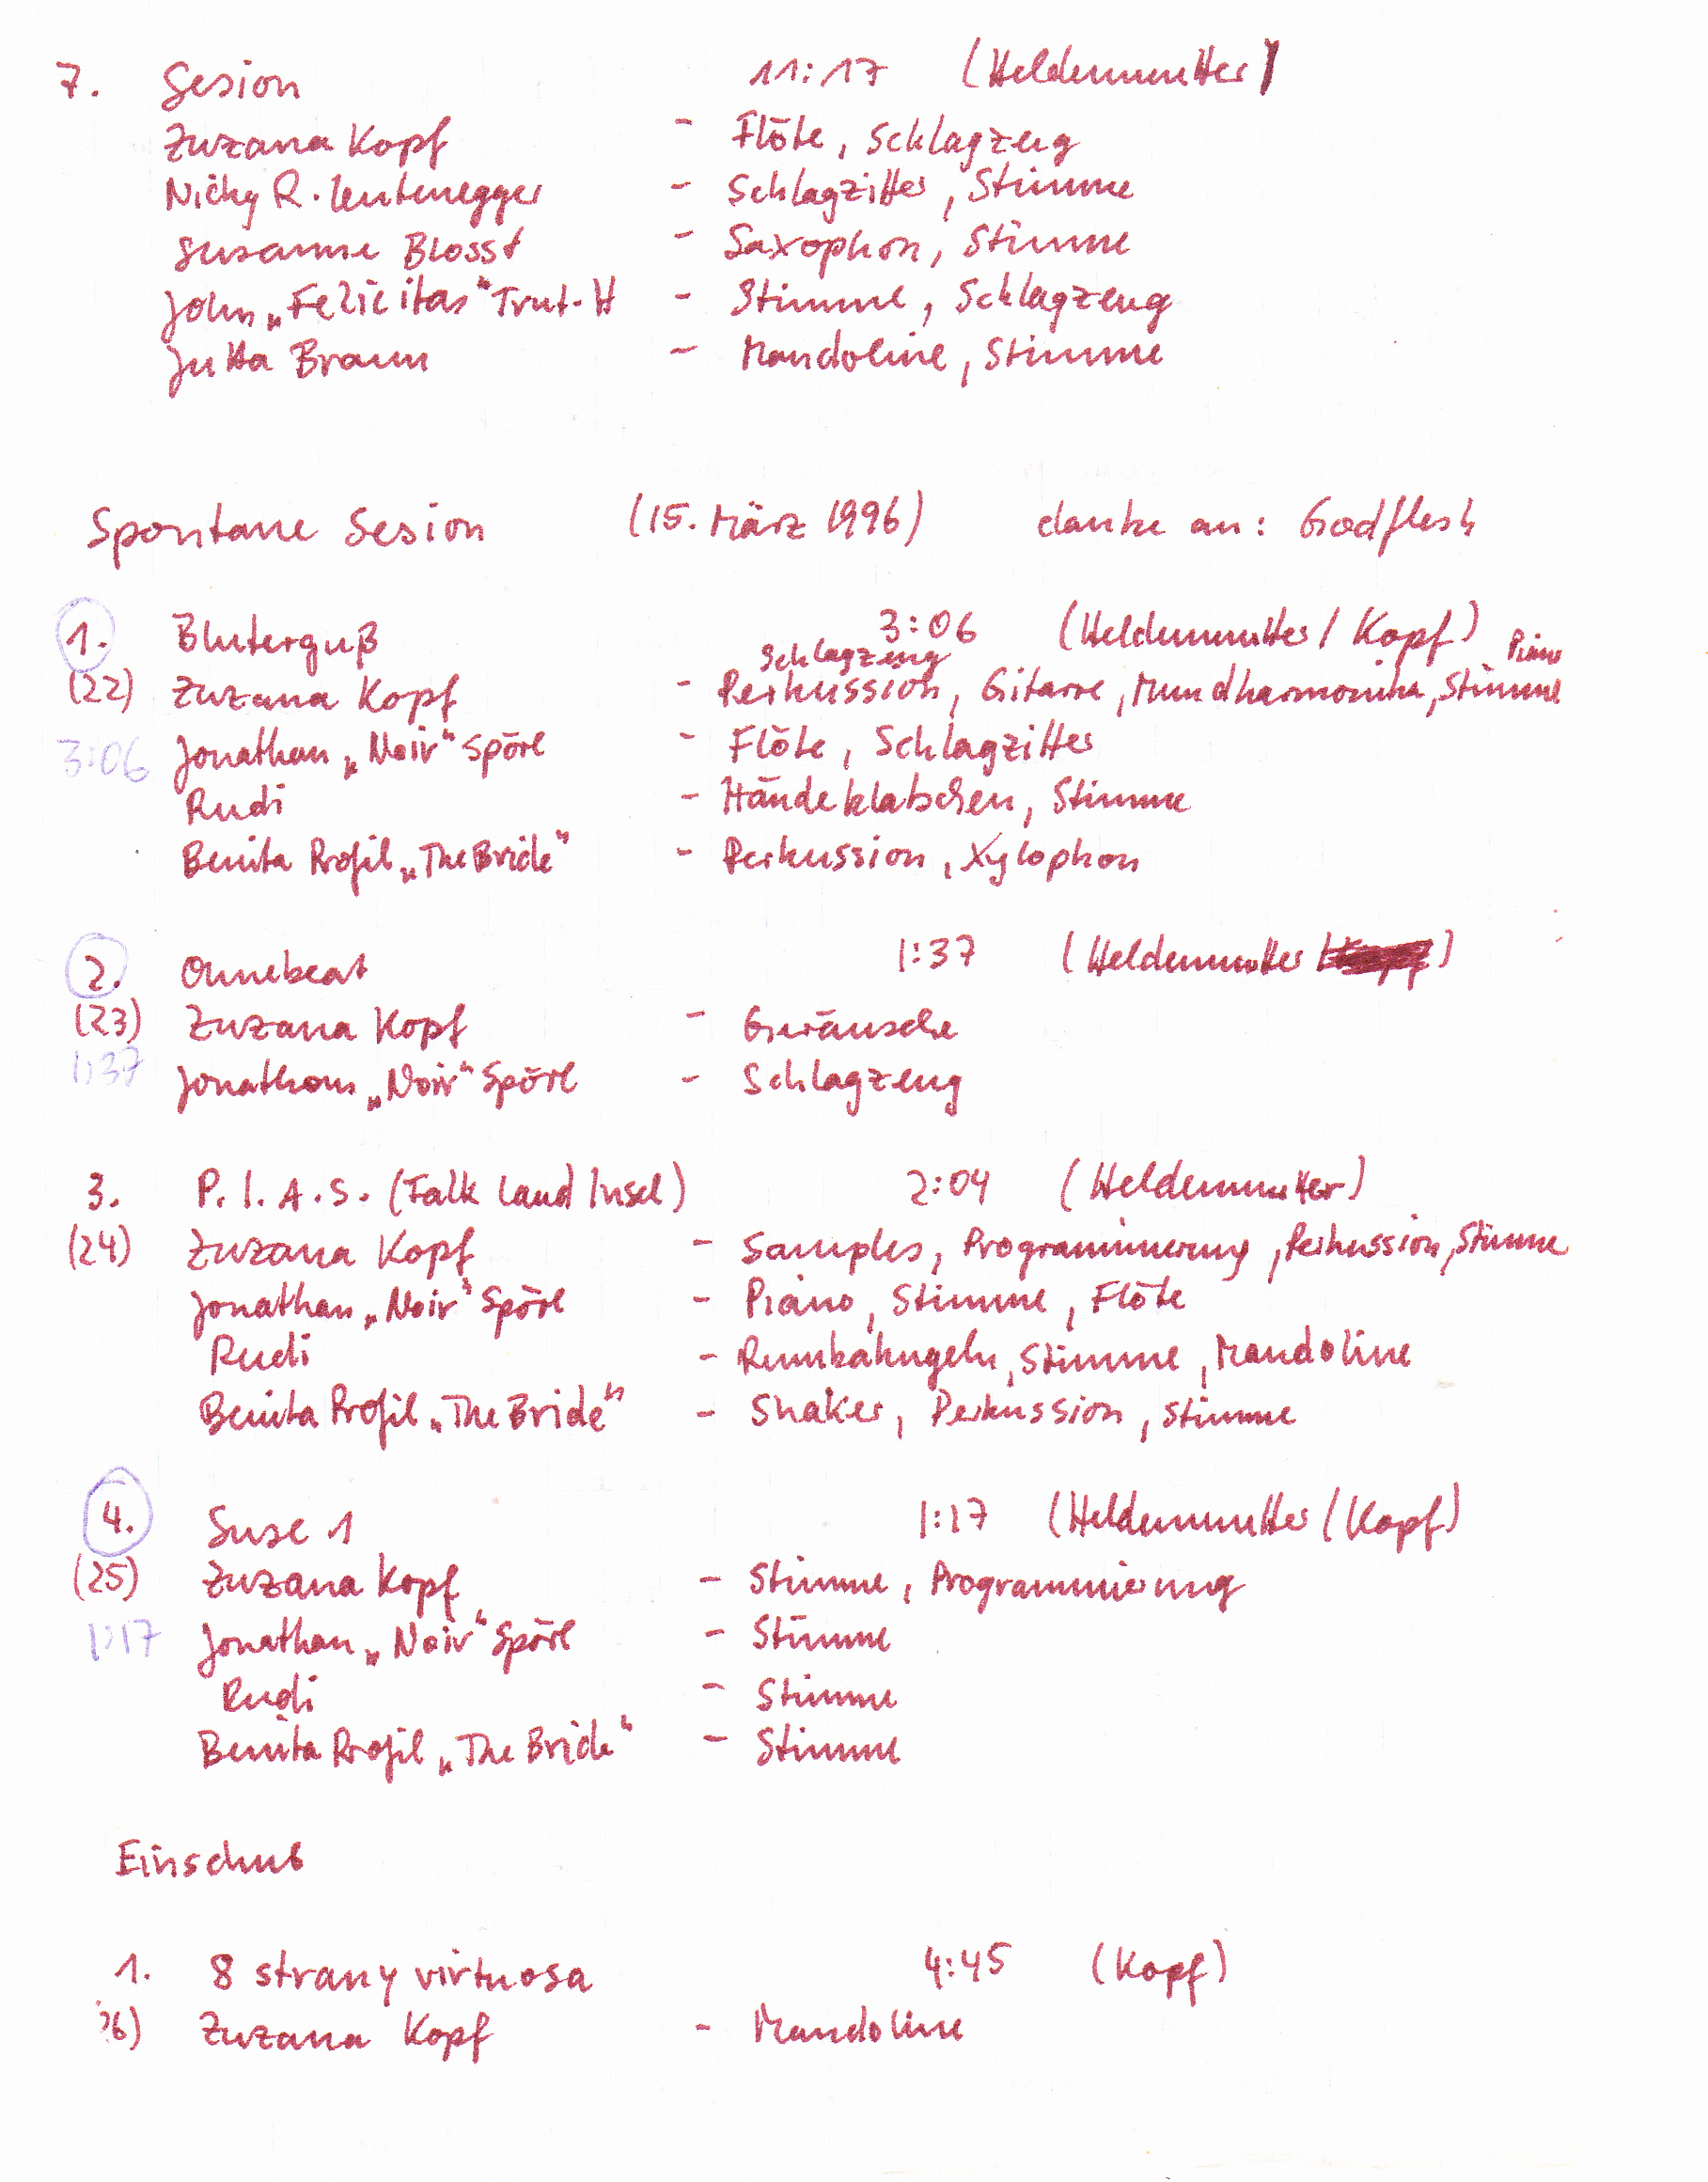 7. Sesion 11:17 (Heldenmutter)
Zuzana Kopf - Flöte, Schlagzeug
Nicky R. Leutenegger - Schlagzitter, Stimme
Susanne Blosst - Saxophon, Stimme
John „Felicitas“ Trut-H - Stimme, Schlagzeug
Jutta Braun - Mandoline, Stimme
Spontane Sesion (15. März 1996) danke an: Godflesh
1. Bluterguß 3:06 (Heldenmutter / Kopf)
Schlagzeug Piano
(22) Zuzana Kopf - Perkussion, Gitarre, Mundharmonika, Stimme
3:06 Jonathan „Noir“ Spörl - Flöte, Schlagzitter
Rudi - Händeklatschen, Stimme
Benita Profil „The Bride“ - Perkussion, Xylophon
2. Ohnebeat 1:37 (Heldenmutter)
(23) Zuzana Kopf - Geräusche
1:37 Jonathan „Noir“ Spörl - Schlagzeug
3. P.I.A.S. (Falk Land Insel) 2:04 (Heldenmutter)
(24) Zuzana Kopf - Samples, Programmierung, Perkussion, Stimme
Jonathan „Noir“ Spörl - Piano, Stimme, Flöte
Rudi - Rumbakugeln, Stimme, Mandoline
Benita Profil „The Bride“ - Shaker, Perkussion, Stimme
4. Suse 1 1:17 (Heldenmutter / Kopf)
(25) Zuzana Kopf - Stimme, Programmierung
1:17 Jonathan „Noir“ Spörl - Stimme
Rudi - Stimme
Benita Profil „The Bride“ - Stimme
Einschub
1. 8 strany virtuosa 4:45 (Kopf)
26) Zuzana Kopf - Mandoline